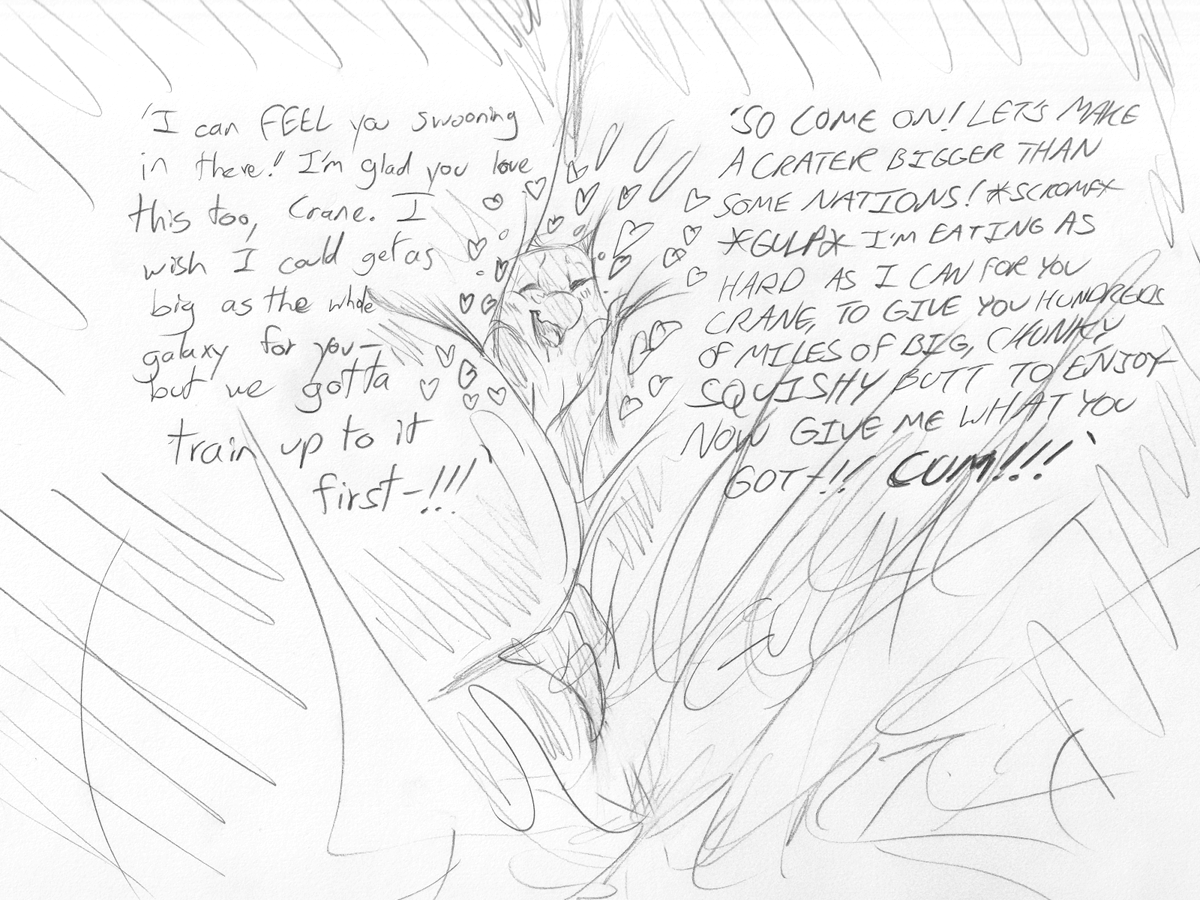 'I can FEEL you swooning
in there!' I'm glad you love
this too, Crane. I
wish I could get as
big as the whole
galaxy for you-
but we gotta
train up to it
first-!!!'
'SO COME ON! LET'S MAKE
A CRATER BIGGER THAN
SOME NATIONS! *SCROMFX
*GULP* I'M EATING AS
HARD AS I CAN FOR YOU
CRANE, TO GIVE YOU HUNDREDS
OF MILES OF BIG, CHUNKY
SQUISHY BUTT TO ENJOY
NOW GIVE ME WHAT YOU
GOT-!! CUM!!!'